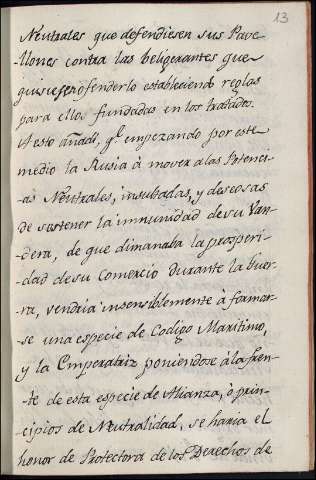 13
Neutrales que defendiesen sus Pave
-llones contra las beligerantes que
quisiesen ofenderlo estableciendo reglas
para ello, fundadas en los tratados.
A esto añadi, qe. empezando por este
medio la Rusia à mover a las Potenci-
as Neutrales, insultadas, y deseosas
de sostener la inmunidad de su Van-
-dera, de que dimanaba la prosperi-
-dad de su Comercio durante la Guer-
-ra, vendria insensiblemente à formar-
-se una especie de Codigo Maritimo,
y la Emperatriz poniendose à la fren-
-te de esta especie de Alianza, ò prin-
-cipios de Neutralidad, se haria el
honor de Protectora de los Derechos de